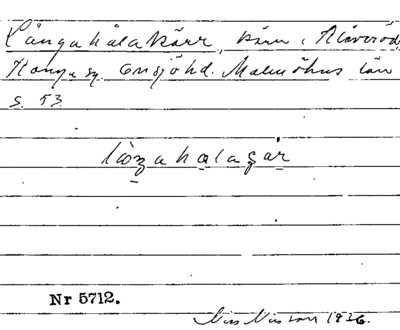 Långahålakärr, kärr i Klöveröd,
Konga sn. Onsjö hd. Malmöhus län
s. 53.
Nr 5712.
Nils Nilsson 1926.